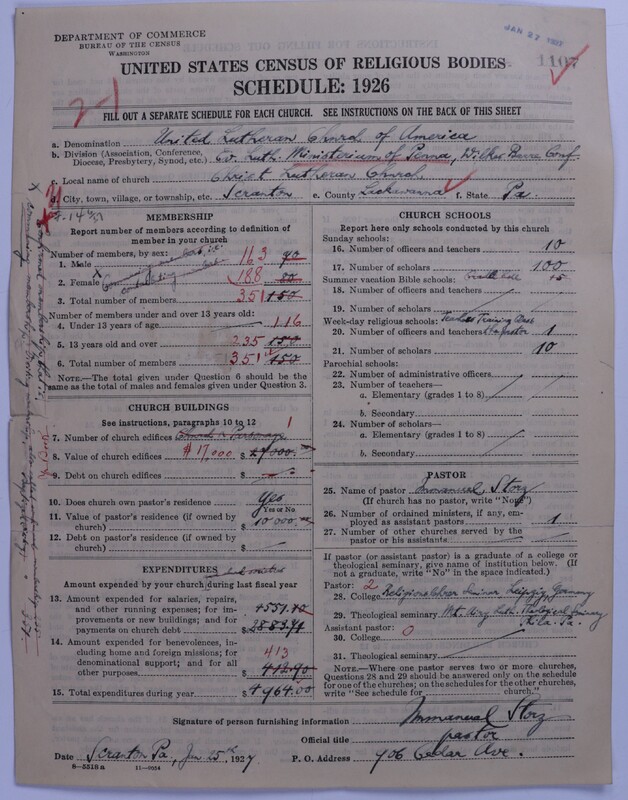 DEPARTMENT OF COMMERCE
BUREAU OF THE CENSUS
WASHINGTON
JAN 27 1927
1107
UNITED STATES CENSUS OF RELIGIOUS BODIES
SCHEDULE: 1926
2-1
FILL OUT A SEPARATE SCHEDULE FOR EACH CHURCH. SEE INSTRUCTIONS ON THE BACK OF THIS SHEET
a. Denomination United Lutheran Church of America
b. Division (Association, Conference, Diocese, Presbytery, Synod, etc.) Ev. Luth. Ministerium of Penna, Wilkes Barre Conf.
c. Local name of church Christ Lutheran Church
d. City, town, village, or township, etc. Scranton e. County Lackawanna f. State Pa.
MEMBERSHIP
Report number of members according to definition of
member in your church
Number of members, by sex:
1. Male 163
2. Female 188
3. Total number of members 351 150
Number of members under and over 13 years old:
4. Under 13 years of age 116
5. 13 years old and over 235 150
6. Total number of members 351 150
NOTE.—The total given under Question 6 should be
the same as the total of males and females given under Question 3.
CHURCH BUILDINGS
See instructions, paragraphs 10 to 12
7. Number of church edifices Church & Parsonage 1
8. Value of church edifices $17,000 $27000
9. Debt on church edifices $
10. Does church own pastor's residence Yes
Yes or No
11. Value of pastor's residence (if owned by
church) $10 000
12. Debt on pastor's residence (if owned by
church) $
EXPENDITURES
Amount expended by your church during last fiscal year
13. Amount expended for salaries, repairs,
and other running expenses; for im-
provements or new buildings; and for
payments on church debt $
4551.10
14. Amount expended for benevolences, in-
cluding home and foreign missions; for
denominational support; and for all
other purposes $
413
412.90
15. Total expenditures during year $4964.00
CHURCH SCHOOLS
Report here only schools conducted by this church
Sunday schools:
16. Number of officers and teachers 10
17. Number of scholars 100
Summer vacation Bible schools: Cradle Roll
18. Number of officers and teachers
19. Number of scholars
Week-day religious schools: Teachers Training Class
20. Number of officers and teachers the pastor 1
21. Number of scholars 10
Parochial schools:
22. Number of administrative officers
23. Number of teachers—
a. Elementary (grades 1 to 8)
b. Secondary
24. Number of scholars—
a. Elementary (grades 1 to 8)
b. Secondary
PASTOR
25. Name of pastor Immanuel Storz
(If church has no pastor, write "None")
26. Number of ordained ministers, if any, em-
ployed as assistant pastors 1
27. Number of other churches served by the
pastor or his assistants
If pastor (or assistant pastor) is a graduate of a college or
theological seminary, give name of institution below. (If
not a graduate, write "No" in the space indicated.)
Pastor: 2
28. College Leipzig, Germany
29. Theological seminary Mt. Airy Luth. Theological Seminary
Phila. Pa.
Assistant pastor: 0
30. College
31. Theological seminary
NOTE.—Where one pastor serves two or more churches,
Questions 28 and 29 should be answered only on the schedule
for one of the churches; on the schedules for the other churches,
write "See schedule for church."
Signature of person furnishing information Immanuel Storz
Official title pastor
Date Scranton Pa., Jan 25th, 1927 P. O. Address 906 Cedar Ave.
8-5318a 11-9054